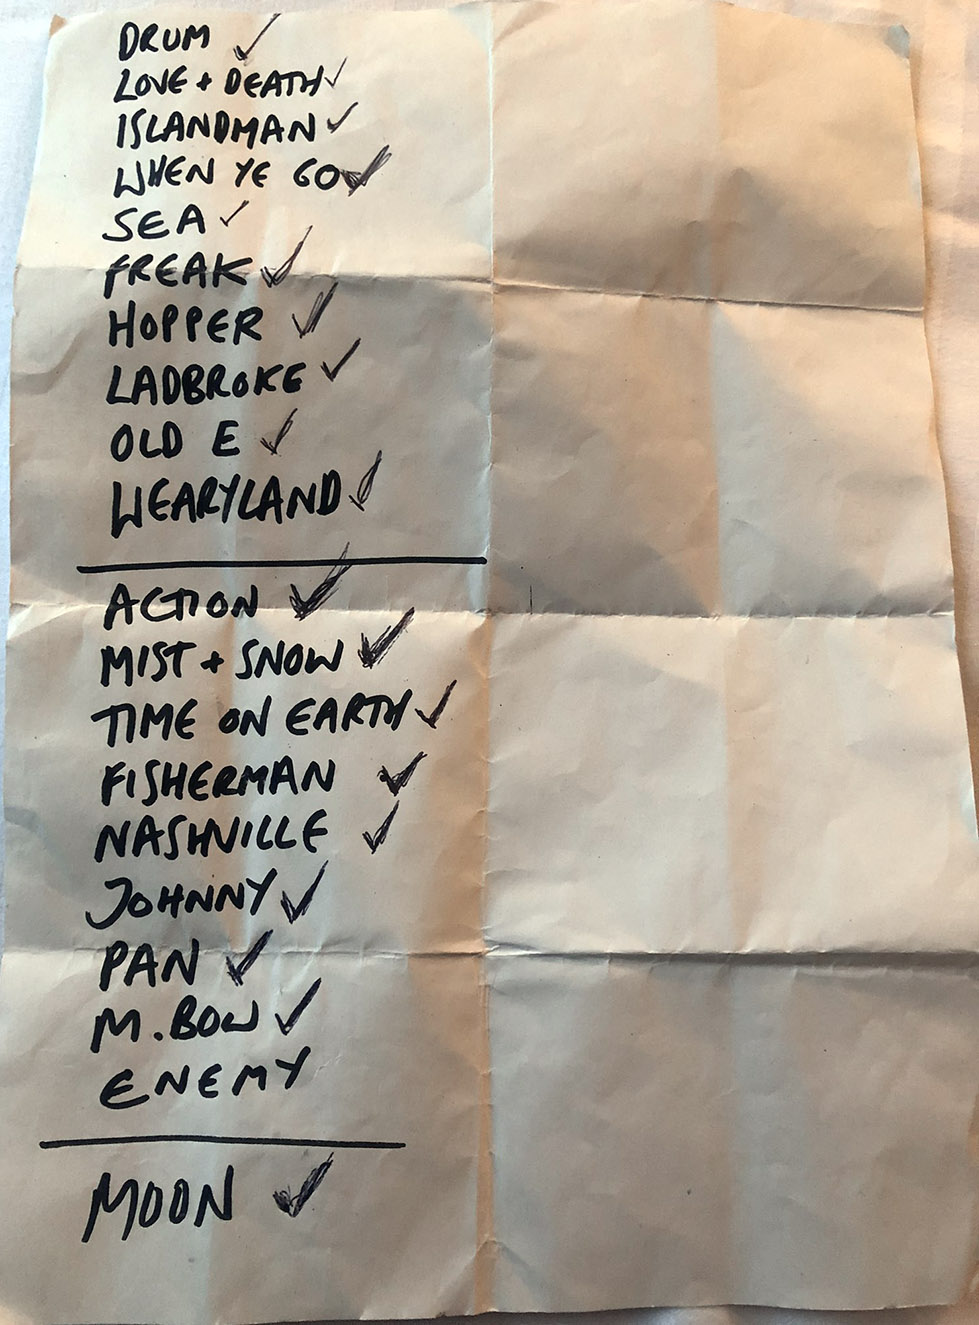 DRUM ✓
LOVE + DEATH ✓
ISLANDMAN ✓
WHEN YE GO ✓
SEA ✓
FREAK ✓
HOPPER ✓
LADBROKE ✓
OLD E ✓
WEARYLAND ✓
ACTION ✓
MIST + SNOW ✓
TIME ON EARTH ✓
FISHERMAN ✓
NASHVILLE ✓
JOHNNY ✓
PAN ✓
M. BOW ✓
ENEMY
MOON ✓